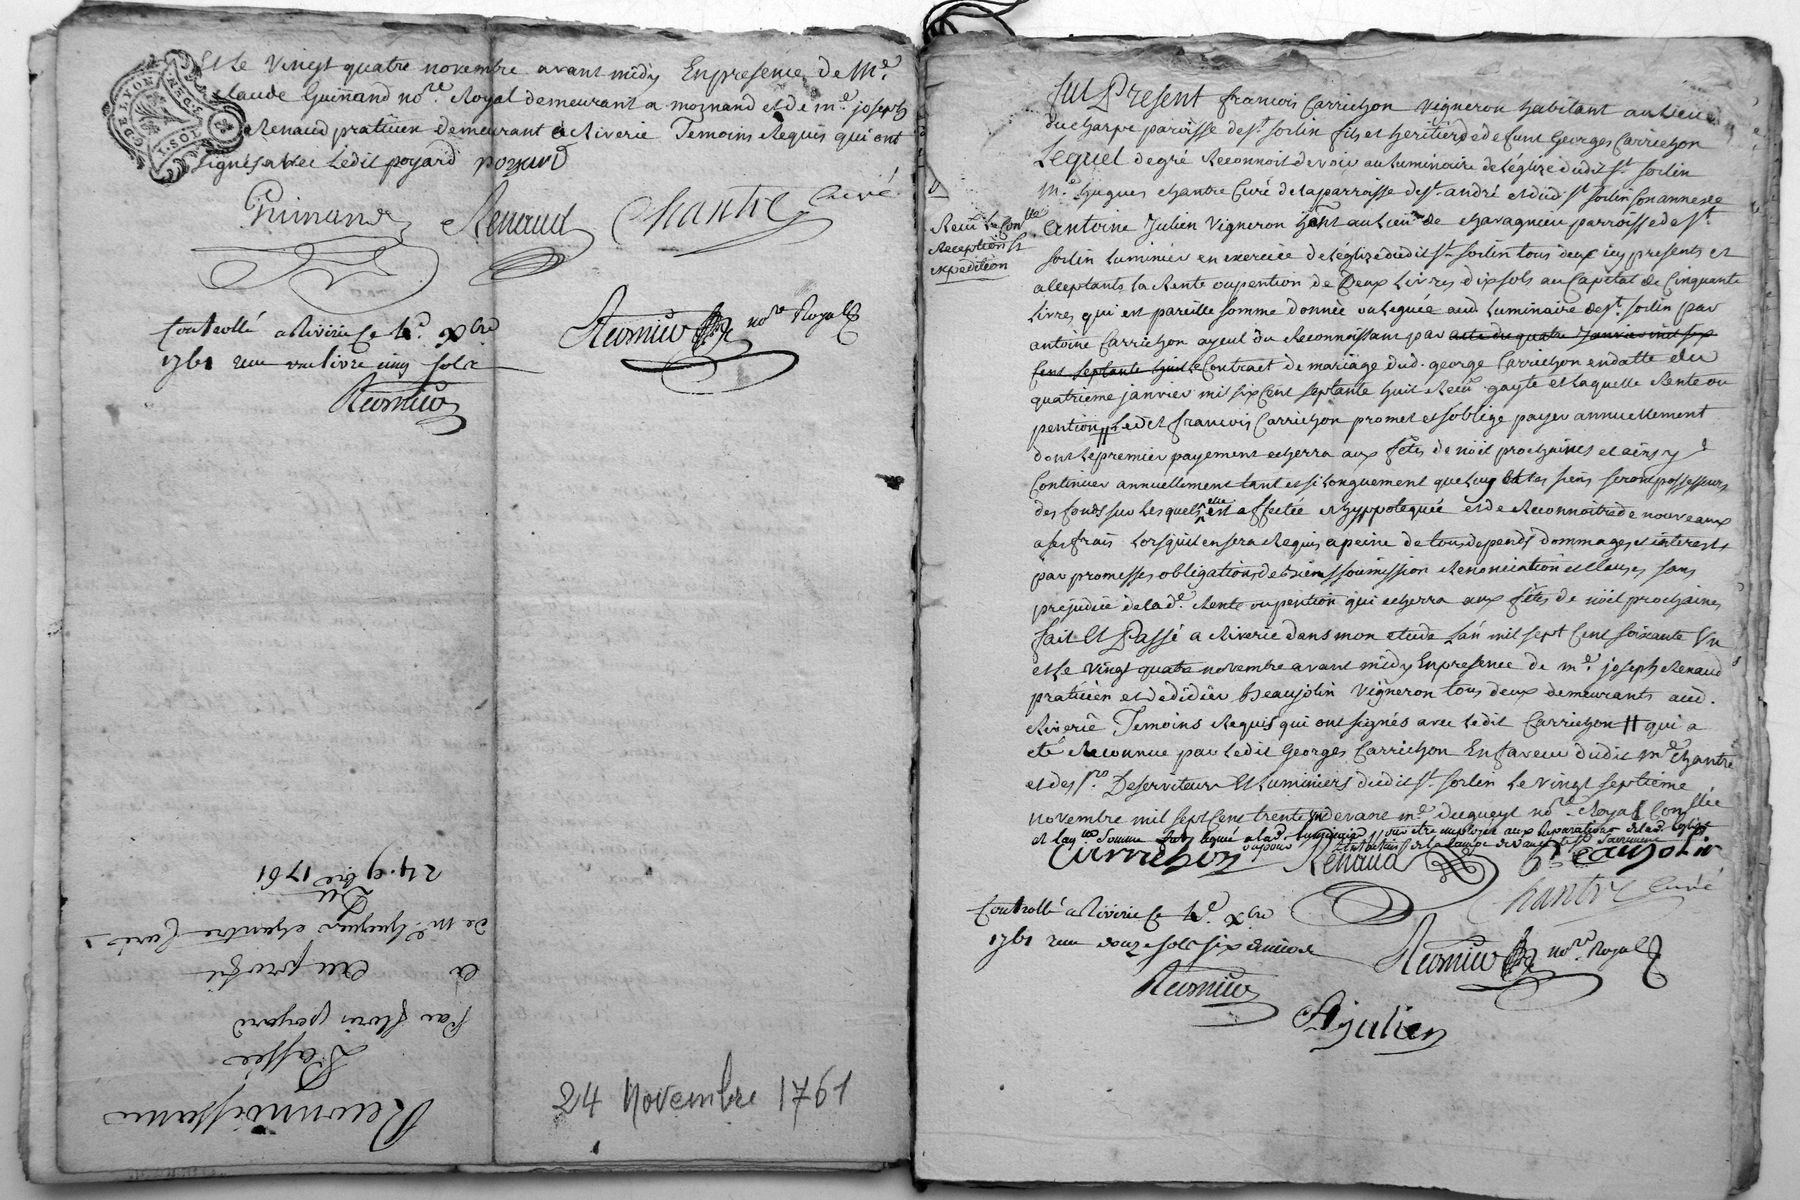 Et Le Vingt quatre novembre avant midy En presence de Me.
Claude Guinand nore. Royal demeurant a mornand et de me. joseph
Renaud praticien demeurant a Riverie Temoins Requis qui ont
signés avec Ledit poyard poyard
Guinand Renaud Chantre Curé
Controllé a Riverie Ce 4e. xbre
1761 reçu une livre cinq sols
nore Royal
G. DE LYON
1. SOL
Reconnoissance
Passée
Par fleuri poyard
Au profit
de me. hugues chantre Curé
Du
24. 9bre 1761
24 Novembre 1761
Fut Present francois Carrichon Vigneron habitant au Lieu
du charpe paroisse de st. sorlin fils et heritier de defunt Georges Carrichon
Lequel de gré Reconnoit devoir au Luminaire de L'église dudit st. sorlin
Me. hugues chantre Curé de la parroisse de st. andré et dud. st sorlin son annexe
Antoine Julien Vigneron hant au Lieu de chavagnieu parroisse de st
sorlin Luminier en exercice de L'église dudit st. sorlin tous deux icy presents et
acceptants La Rente ou pention de Deux Livres dix sols au Capital de Cinquante
Livres qui est pareille somme donnée ou Leguée aud Luminaire de st. sorlin par
antoine Carrichon ayeul du Reconnoissant par acte du quatre Janvier mil six
Cent septante huit Le Contract de mariage dud. george Carrichon en datte du
quatrieme janvier mil six Cent septante huit Reçu gayte et Laquelle Rente ou
pention Ledit francois Carrichon promet et s'oblige payer annuellement
dont Le premier payement echerra aux fêtes de noël prochaines et ainsy
Continuer annuellement tant et si Longuement que Luy et Les siens seront possesseurs
des fonds sur Lesquels elle est affectée et hyppotequée et de Reconnoitre de nouveaux
a ses frais Lorsqu'il en sera Requis a peine de tous depends dommages et interests
par promesses obligations de biens soumission Renonciation et Clauses sans
prejudice de La de. Rente ou pention qui echerra aux fêtes de noël prochaines
fait Et Passé a Riverie dans mon etude L'an mil sept Cent soixante Un
et Le Vingt quatre novembre avant midy En presence de me. joseph Renaud
praticien et de didier beaujolin Vigneron tous deux demeurants aud.
Riverie Temoins Requis qui ont signés avec Ledit Carrichon qui a
eté Reconnue par Ledit Georges Carrichon En faveur dudit Me chantre
et des srs Deserviteurs Et Luminiers dudit st. sorlin Le Vingt septieme
novembre mil sept Cent trente devant me. dugueyt nore. Royal
Reçu Le
Reception et
expedition
Carrichon Renaud Beaujolin
Chantre Curé
Controllé a Riverie Ce 4e. xbre
1761 reçu douze sols six deniers
nore Royal
A julien